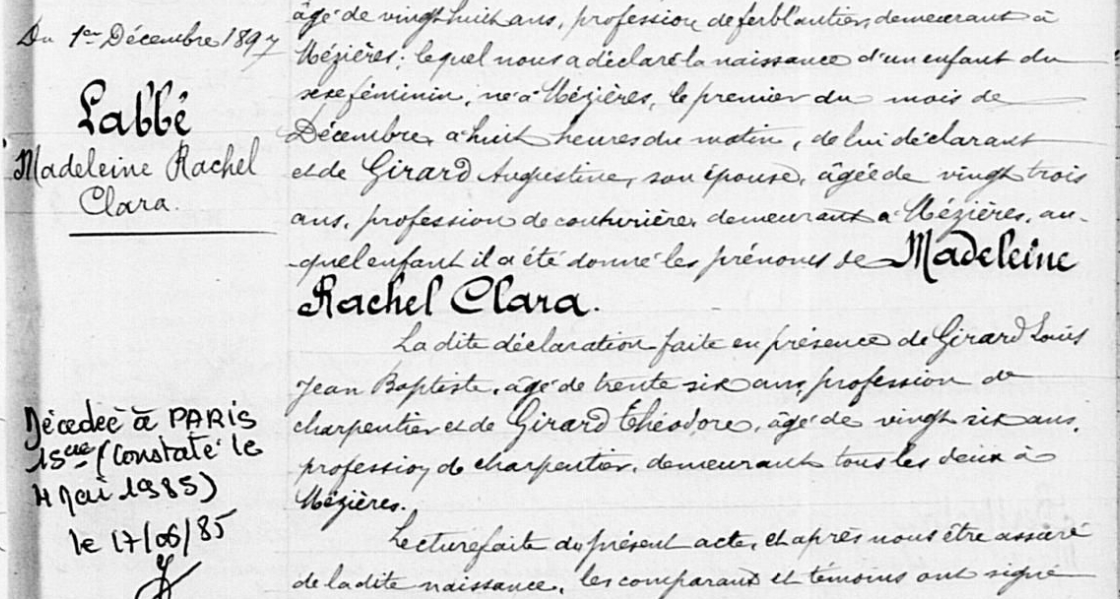 Du 1er Décembre 1897
Labbé
Madeleine Rachel
Clara.
Décédée à PARIS
15ème (constaté le
4 Mai 1985)
le 17/06/85
âgé de vingt huit ans, profession de ferblantier, demeurant à
Mézières; lequel nous a déclaré la naissance d'un enfant du
sexe féminin, né à Mézières, le premier du mois de
Décembre, à huit heures du matin, de lui déclarant
et de Girard Augustine, son épouse, âgée de vingt trois
ans, profession de couturière, demeurant à Mézières, au-
quel enfant il a été donné les prénoms de Madeleine
Rachel Clara.
La dite déclaration faite en présence de Girard Louis
Jean Baptiste, âgé de trente six ans, profession de
charpentier et de Girard Théodore, âgé de vingt six ans,
profession de charpentier, demeurant tous les deux à
Mézières.
Lecture faite du présent acte, et après nous être assuré
de la dite naissance, les comparant et témoins ont signé